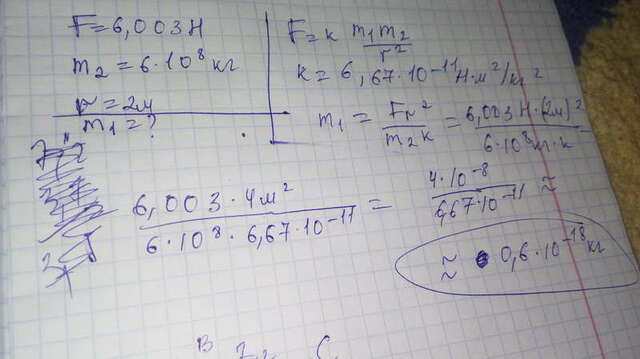 F=6,003Н
m₂ = 6·10⁸ кг
r = 2м
m₁ = ?
F = k m₁m₂/r²
k = 6,67·10⁻¹¹ Нм²/кг²
m₁ = Fr²/m₂k = 6,003Н·(2м)²/6·10⁸кг·k =
6,003·4м²/6·10⁸·6,67·10⁻¹¹ =
4·10⁻⁸/6,67·10⁻¹¹ ≈
≈ 0,6·10⁻¹⁸ кг